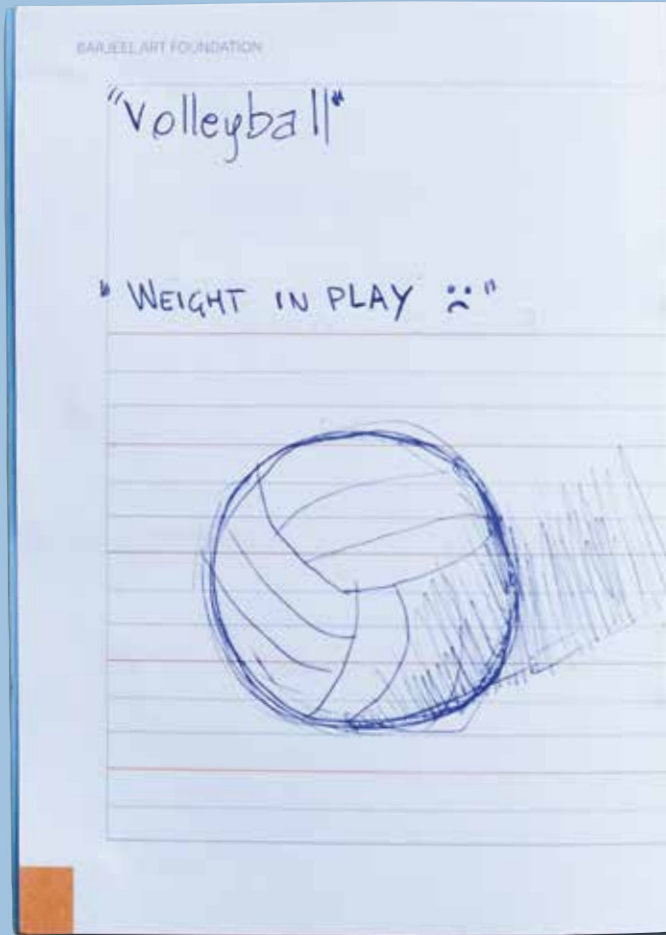 BARJEEL ART FOUNDATION
"Volleyball"
"WEIGHT IN PLAY :("